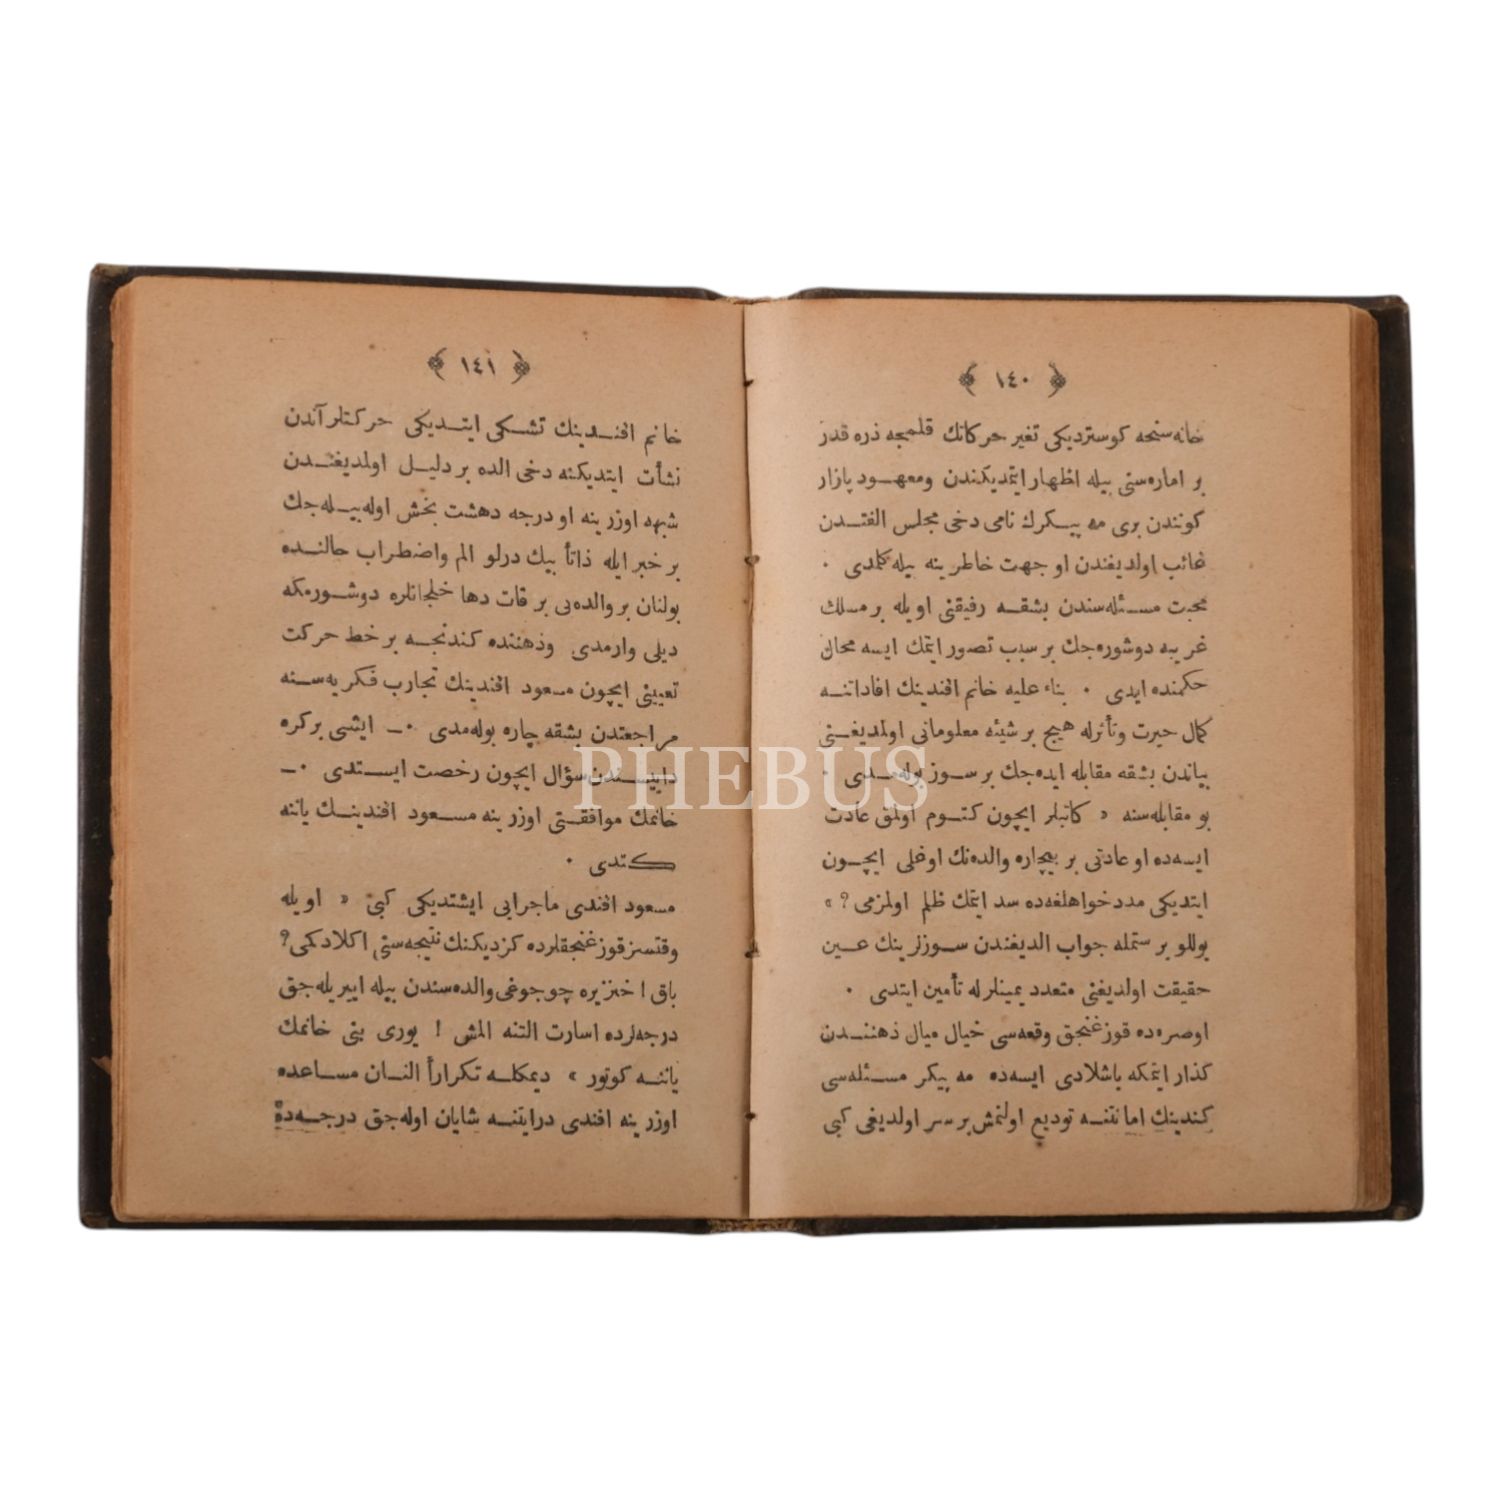 ﴿ ١٤٠ ﴾
خانه‌سنجه كوسترديكى تغير حركاتك قلمجه ذره قدر
بر اماره‌سنى بيله اظهار ايتمديكندن ومعهود پازار
كونندن برى مه پيكرك نامى دخى مجلس الفتدن
غائب اولديغندن او جهت خاطرينه بيله كلمدى ٠
محبت مسئله‌سندن بشقه رفيقنى اويله بر مسلك
غريبه دوشوره‌جك بر سبب تصور ايتمك ايسه محال
حكمنده ايدى ٠ بناء عليه خانم افندينك افاداتنه
كمال حيرت وتأثرله هيچ بر شيئه معلوماتى اولمديغنى
بياندن بشقه مقابله ايده‌جك بر سوز بوله‌مدى ٠
بو مقابله‌سنه « كاتبلر ايچون كتوم اولمق عادت
ايسه‌ده او عادتى بر بيچاره والده‌نك اوغلى ايچون
ايتديكى مددخواهلغه‌ده سد ايتمك ظلم اولمزمى ؟ »
يوللو بر ستمله جواب الديغندن سوزلرينك عين
حقيقت اولديغنى متعدد يمينلرله تأمين ايتدى ٠
اوصره‌ده قوزغنجق وقعه‌سى خيال ميال ذهنندن
كذار ايتمكه باشلادى ايسه‌ده مه پيكر مسئله‌سى
كندينك امانتنه توديع اولنمش بر سر اولديغى كبى
﴿ ١٤١ ﴾
خانم افندينك تشكى ايتديكى حركتلر آندن
نشأت ايتديكنه دخى الده بر دليل اولمديغندن
شبهه اوزرينه او درجه دهشت بخش اوله‌بيله‌جك
بر خبر ايله ذاتاً بيك درلو الم واضطراب حالنده
بولنان بر والده‌يى بر قات دها خلجانلره دوشورمكه
ديلى وارمدى وذهننده كندنجه بر خط حركت
تعيينى ايچون مسعود افندينك تجارب فكريه‌سنه
مراجعتدن بشقه چاره بوله‌مدى ٠ـ ايشى بر كره
داييسندن سؤال ايچون رخصت ايستدى ٠ـ
خانمك موافقتى اوزرينه مسعود افندينك ياننه
كتدى ٠
مسعود افندى ماجرايى ايشتديكى كبى « اويله
وقتسز قوزغنجقلرده كزديكنك نتيجه‌سنى اكلادكمى ؟
باق ! خنزيره چوجوغى والده‌سندن بيله ايريله‌جق
درجه‌لرده اسارت التنه المش ! يورى بنى خانمك
ياننه كوتور » ديمكله تكراراً النان مساعده
اوزرينه افندى درايتنه شايان اوله‌جق درجه‌ده